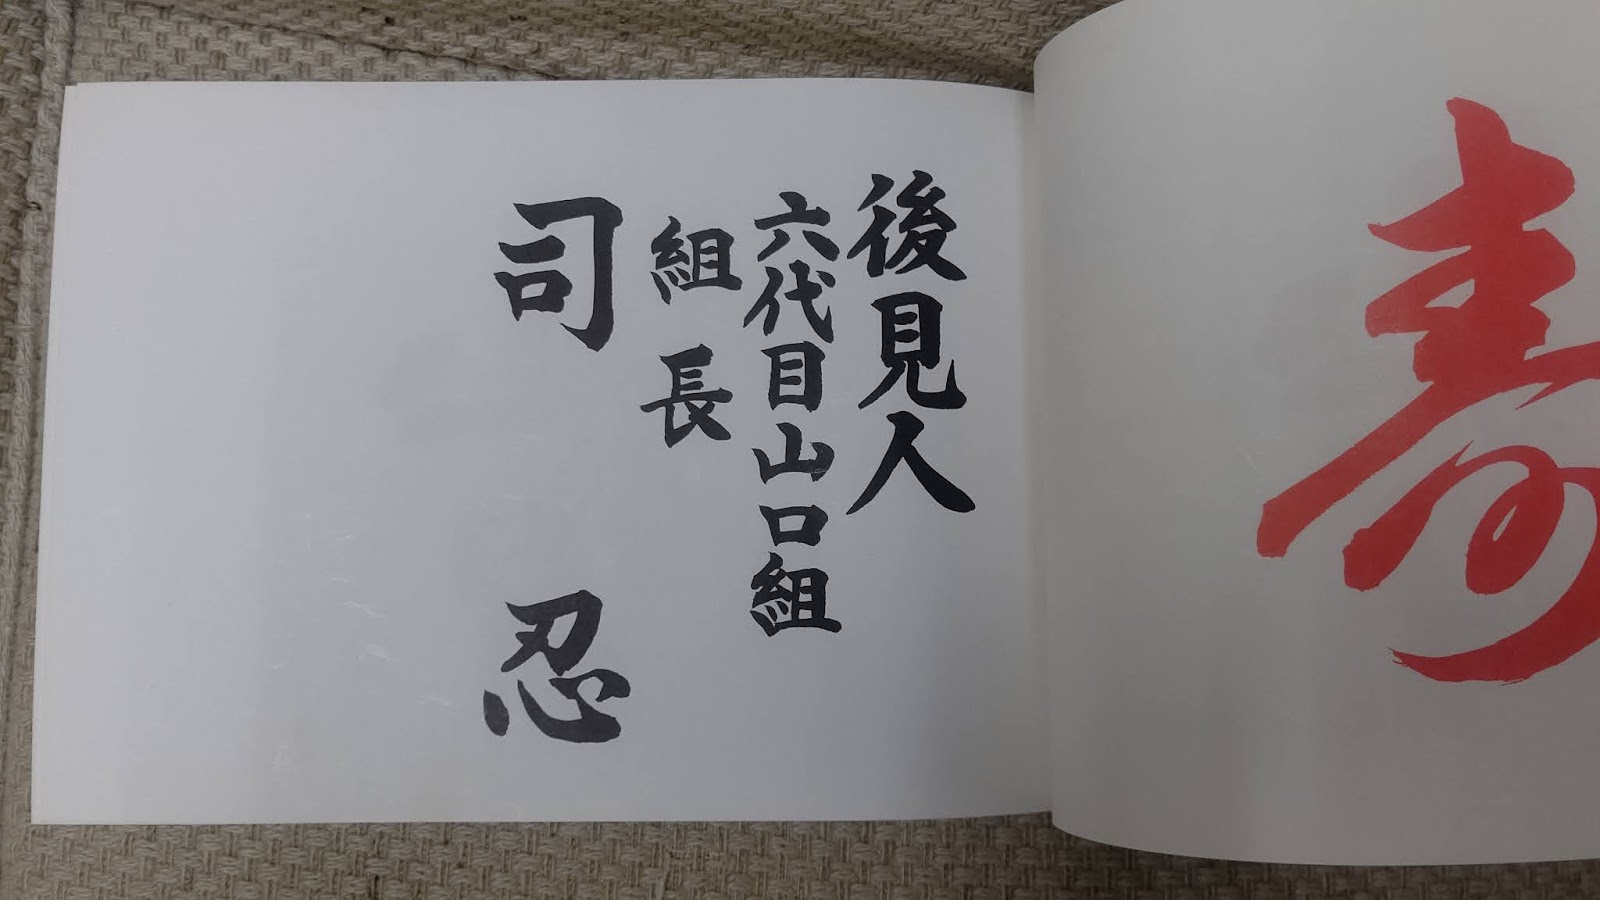 寿
後見人
六代目山口組
組長
司忍